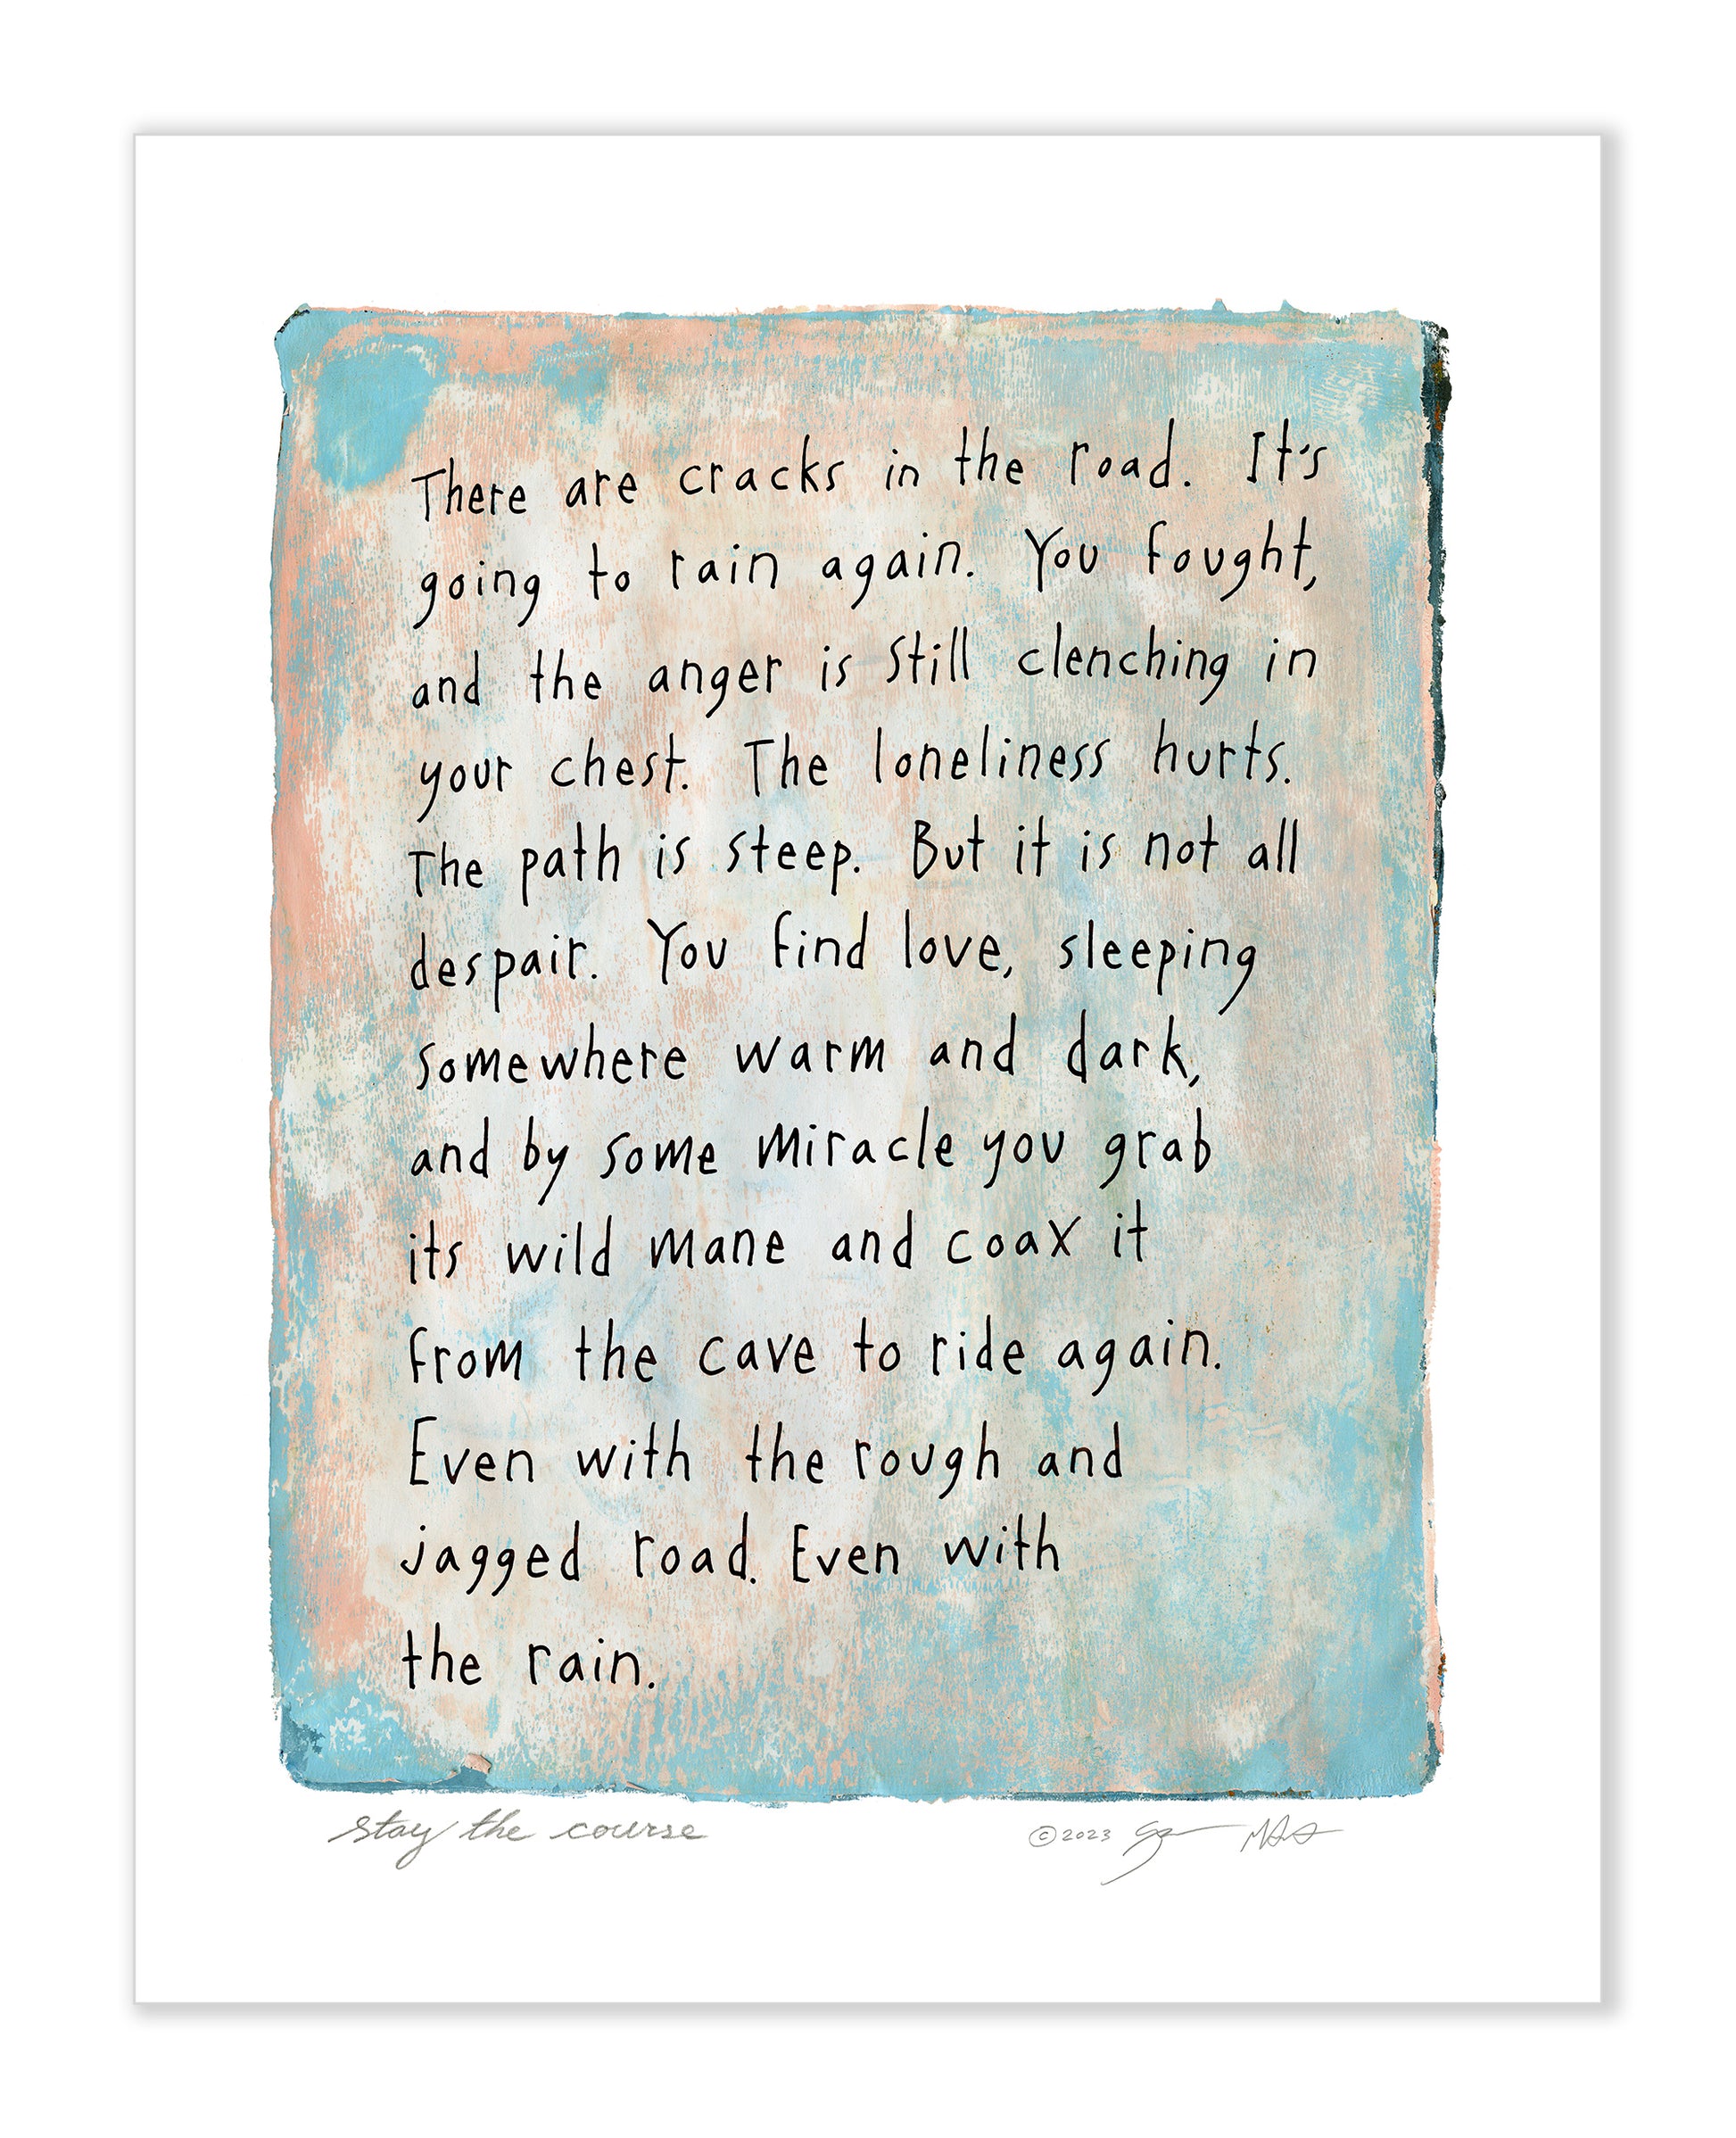 There are cracks in the road. It's
going to rain again. You fought,
and the anger is still clenching in
your chest. The loneliness hurts.
The path is steep. But it is not all
despair. You find love, sleeping
somewhere warm and dark,
and by some miracle you grab
its wild mane and coax it
from the cave to ride again.
Even with the rough and
jagged road. Even with
the rain.
stay the course
©2023